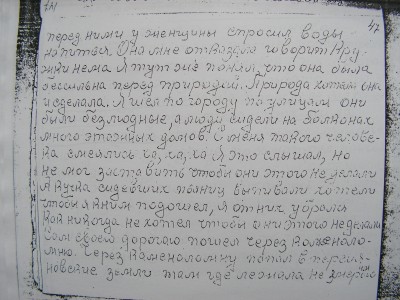 47
перед ними у женщины спросил воды
напиться. Она мне отказала говорит Кру-
жки нема Я тут эже понял, что она была
бессильна перед природой. Природа хотела она
и сделала. Я шел по городу по улицам они
были безлюдные, а люди сидели на болконах
много этожных домов. С меня такого челове-
ка смеялись ха, ха, ха Я это слышал, но
не мог заставить чтобы они этого не делали
А кучка сидевших пьяниц выпивали хотели
чтобы я к ним подошел, я от них убрался
как никогда не хотел чтобы они этого не делали
Сам своей дорогою пошел через Каменоло-
мню. Через Каменоломню попал в персия-
новские земли там где лежала не